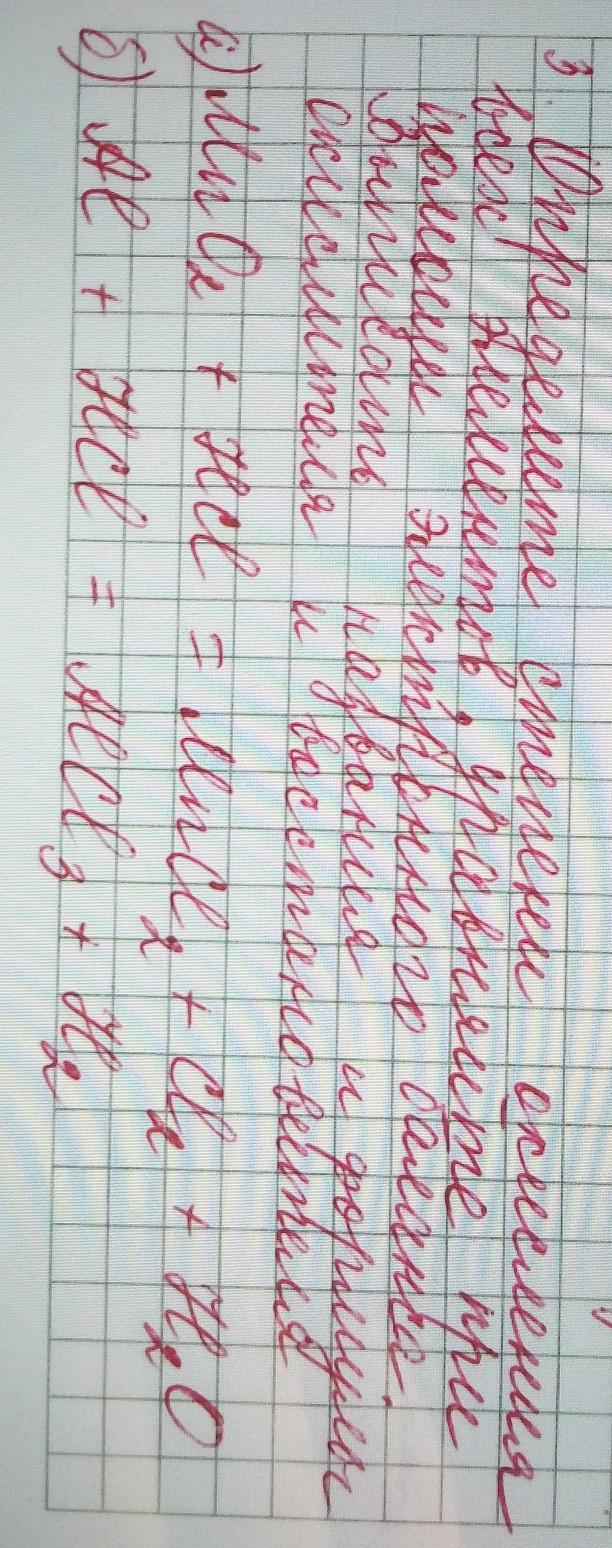 3. Определите степени окисления
всех элементов, уравняйте при
помощи электронного баланса.
Выписать названия и формулы
окислителя и восстановителя
а) MnO2 + HCl = MnCl2 + Cl2 + H2O
б) Al + HCl = AlCl3 + H2